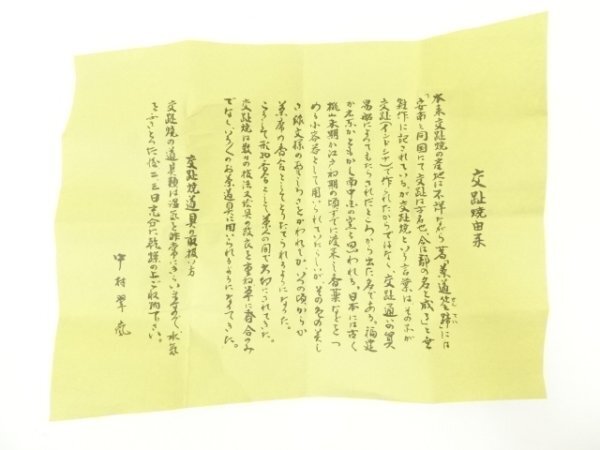 交趾焼由来
本来交趾焼の産地は不詳ながら、茗「茶道筌蹄」には
「安南ト同国にて交趾は古名也、今は郡の名と成る」と無
雑作に記されているが、交趾焼という言葉はその土が
交趾(インドシナ)で作られたからではなく、交趾通いの貿
易船によってもたらされたところから出た名である。福建
か広東かともかく南中国の窯と思われる。日本には古く
桃山末期か江戸初期の頃すでに渡来し、香薬などをつ
める小容器として用いられていたらしいが、その色の美し
さ、形文様の面しろさとがかわれてか、いつの頃からか
茶席の香合としてとりたてられるようになった。
こうして形物香合として、茶人の間で大切にされてきた。
交趾焼は数々の技法又絵具の改良を重ね単に香合のみ
でなく、いろいろのお茶道具に用いられるようになってきた。
交趾焼道具の取扱い方
交趾焼の道具類は湿気を非常にきらいますので、水気
をふきとった後二三日充分に乾燥の上ご収納下さい。
中村翠嵐